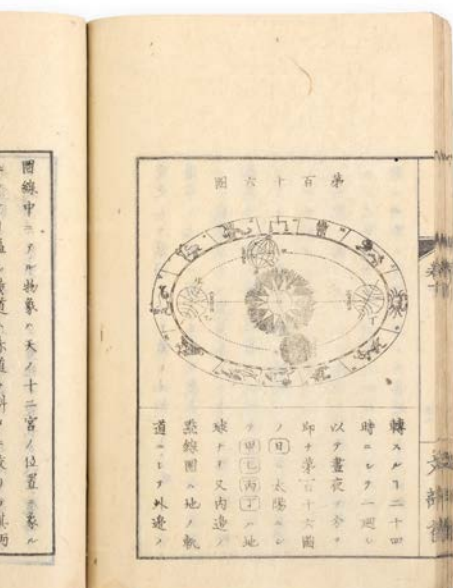 第百十六圖
轉スルヿ二十四
時ニシテ一廻シ
以テ晝夜ヲ分ツ
即チ第百十六圖
ノ日ハ太陽ニシ
テ甲乙丙丁ハ地
球ナリ又内邊ノ
點線圈ハ地ノ軌
道ニシテ外邊ノ
圈線中ニアル物象ハ天ノ十二宮ノ位置ヲ象ル